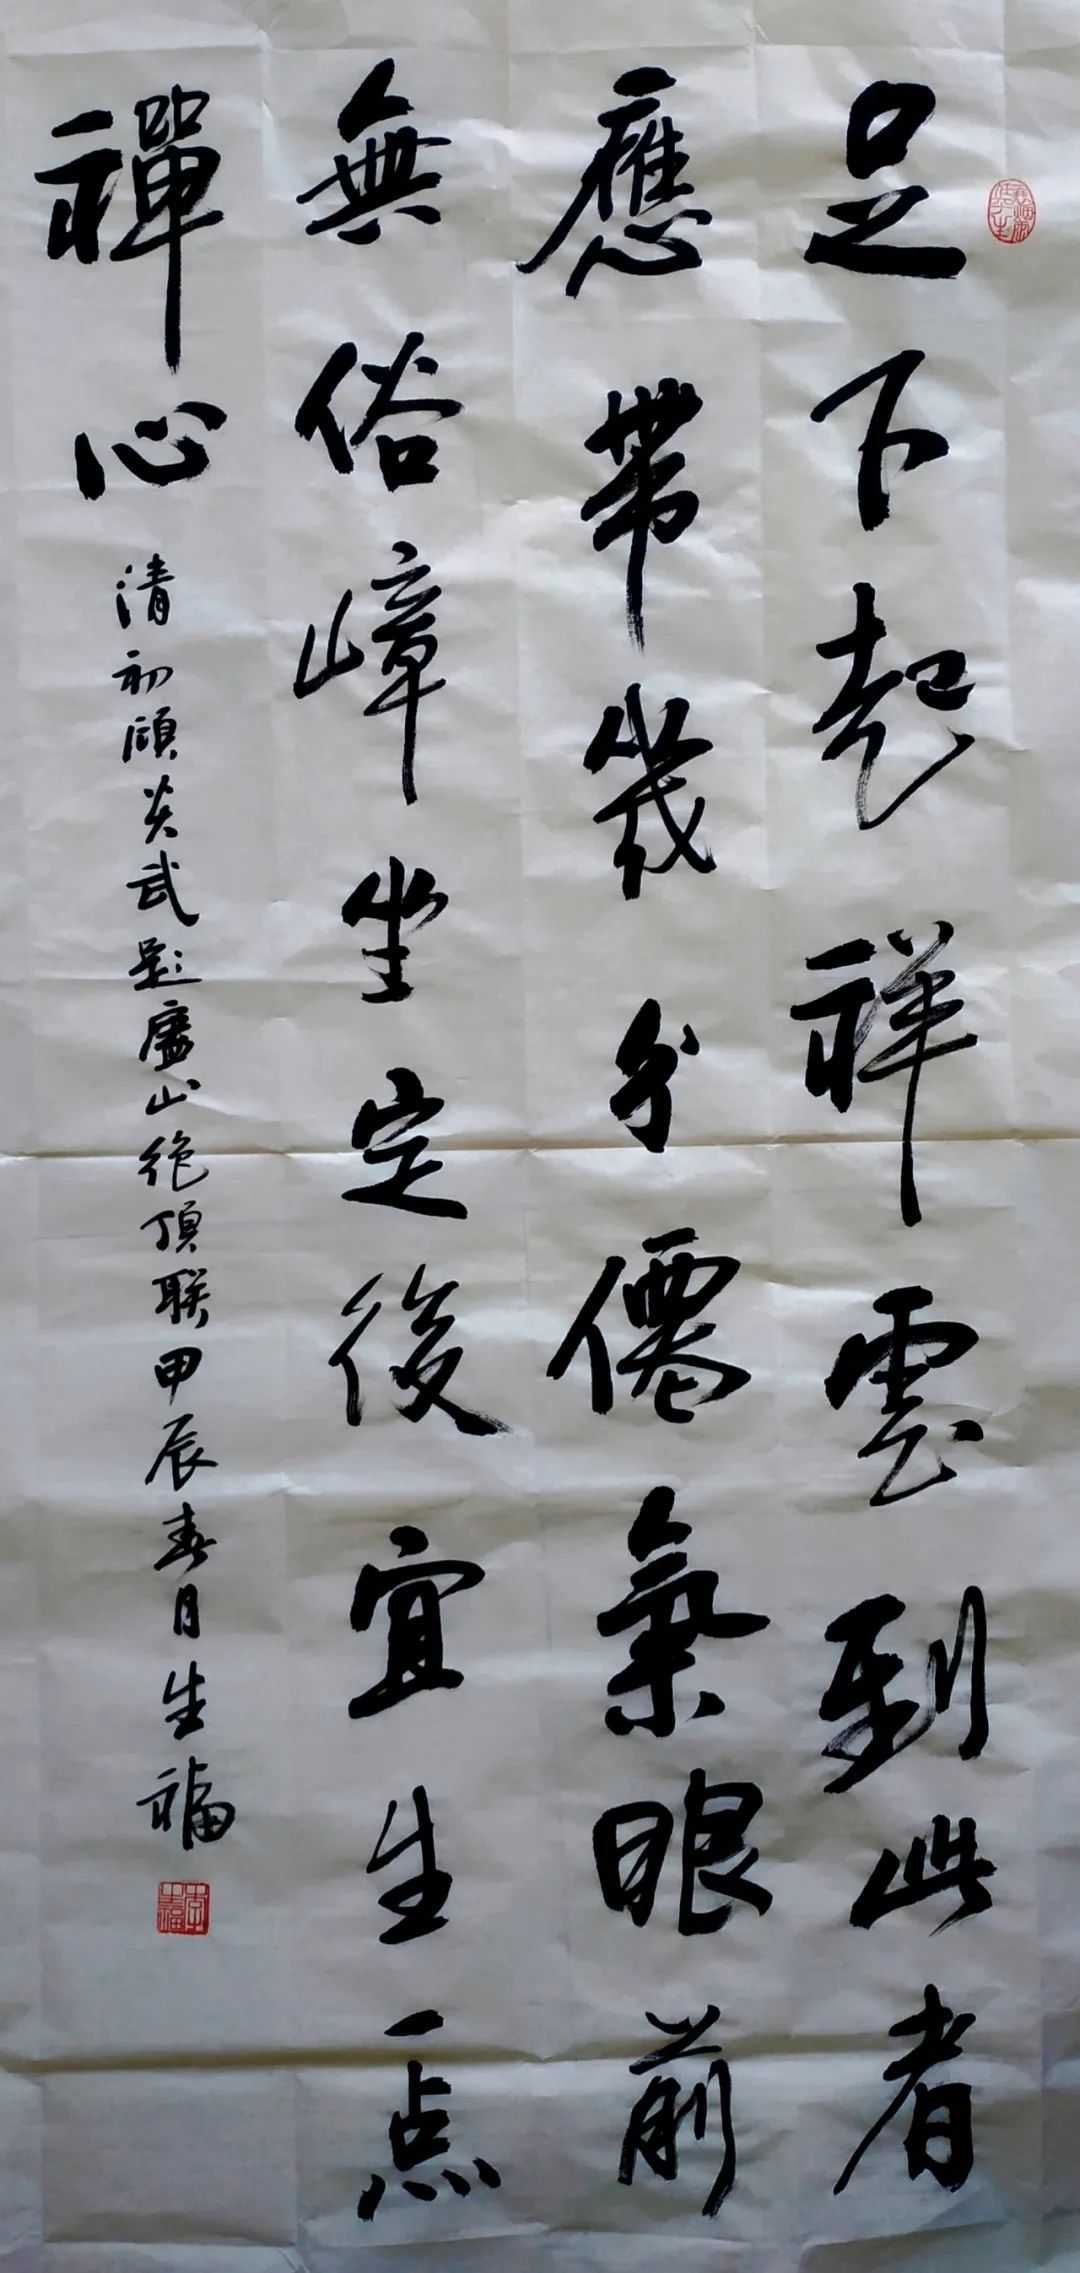 足下起祥雲到此者
應帶幾分僊氣眼前
無俗嶂坐定後宜生一点
禪心
清初顾炎武题廬山绝頂联甲辰春月生福
李生福